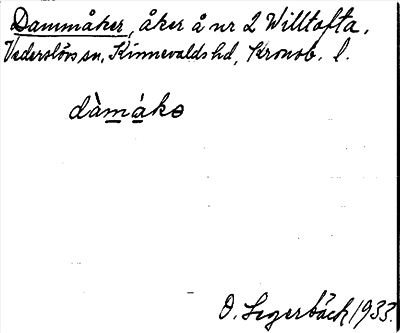 Dammåker, åker å nr 2 Willtofta,
Vederslövs sn, Kinnevalds hd, Kronob. l.
dàmákɘ
O. Segerbäck 1933.